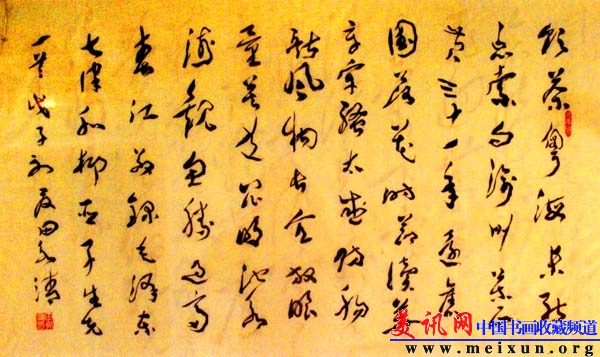 饮茶粤海未能
忘索句渝州葉正
黄三十一年还舊
國落花时节讀華
章牢骚太盛防腸
断風物长宜放眼
量莫道昆明池水
浅觀魚勝过富
春江敬録毛泽东
七律和柳亚子先生
一首戊子初夏
美讯网 中国书画收藏频道
www.meixun.org